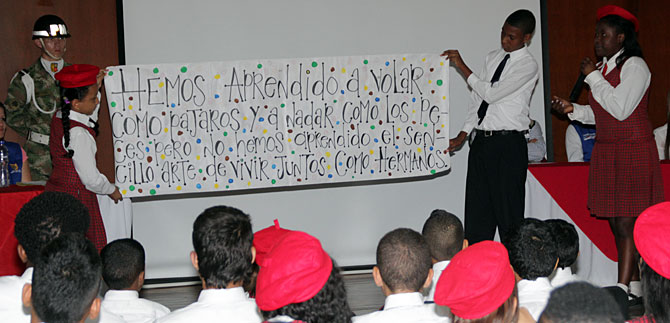 HEMOS APRENDIDO A VOLAR
COMO PAJAROS Y A NADAR COMO LOS PE-
CES PERO NO HEMOS APRENDIDO EL SEN-
CILLO ARTE DE VIVIR JUNTOS COMO HERMANOS.